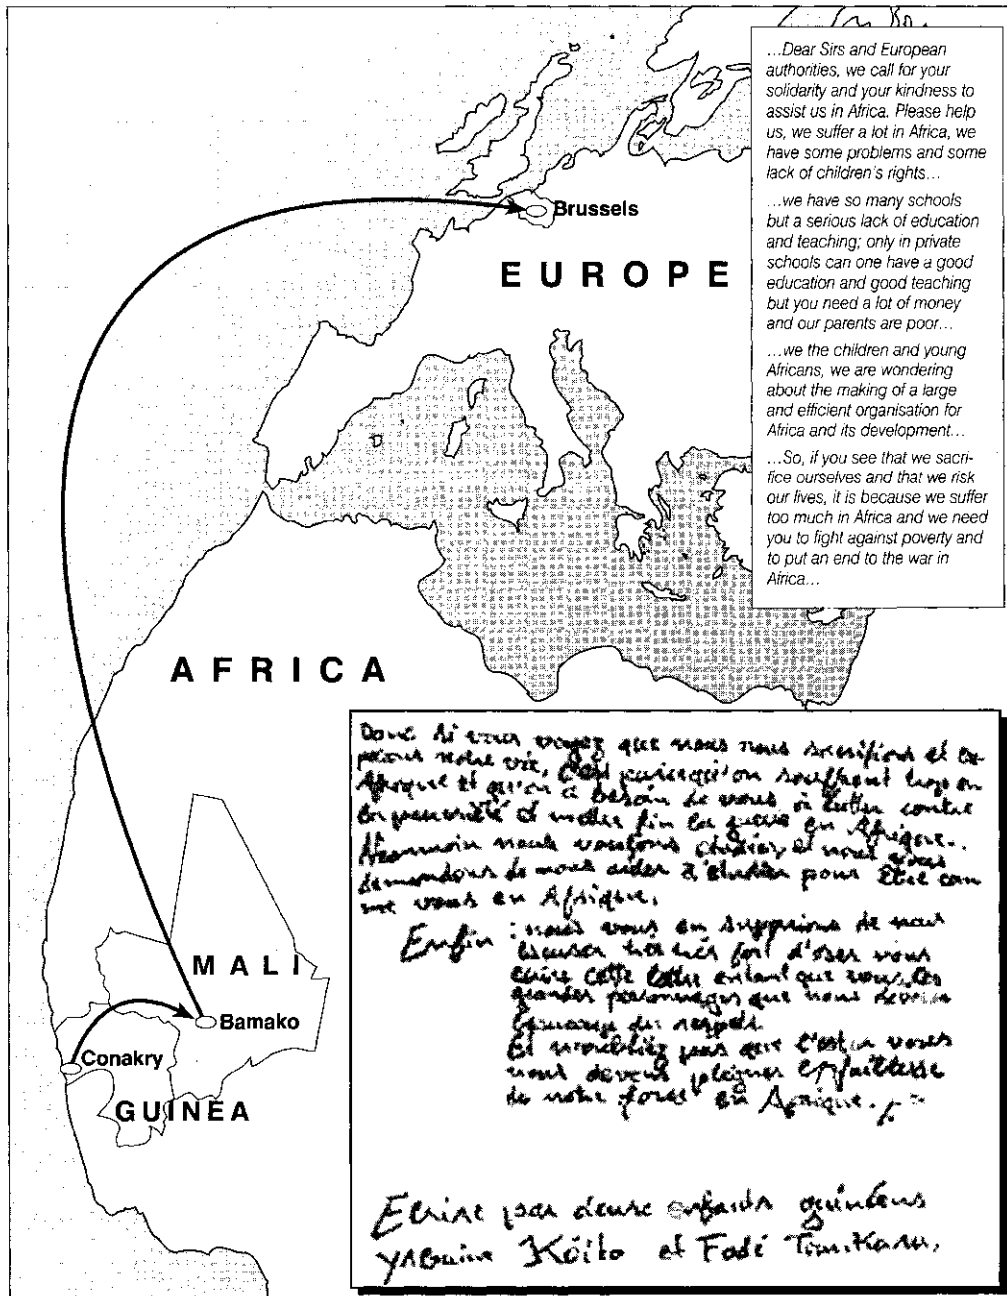 ...Dear Sirs and European
authorities, we call for your
solidarity and your kindness to
assist us in Africa. Please help
us, we suffer a lot in Africa, we
have some problems and some
lack of children's rights...
...we have so many schools
but a serious lack of education
and teaching; only in private
schools can one have a good
education and good teaching
but you need a lot of money
and our parents are poor...
...we the children and young
Africans, we are wondering
about the making of a large
and efficient organisation for
Africa and its development...
...So, if you see that we sacri-
fice ourselves and that we risk
our lives, it is because we suffer
too much in Africa and we need
you to fight against poverty and
to put an end to the war in
Africa...
Brussels
EUROPE
AFRICA
MALI
Bamako
Conakry
GUINEA
Donc si vous voyez que nous nous sacrifions et ex
posons notre vie, c'est parcequ'on souffrent trop en
Afrique et qu'on a besoin de vous lutter contre
et mettre fin la guerre en Afrique.
nous voulons étudier, et nous vous
demandons de nous aider à étudier pour être com
me vous en Afrique.
Enfin : nous vous en supplions de nous
excuser très très fort d'oser vous
écrire cette lettre entant que vous, les
grandes personnages que nous devons
beaucoup du respect.
Et n'oubliez pas que c'est a vous
nous devons
de notre force en Afrique.
Ecrire par deux enfants guinéens
Yaguine Koïta et Fodé Tounkara.